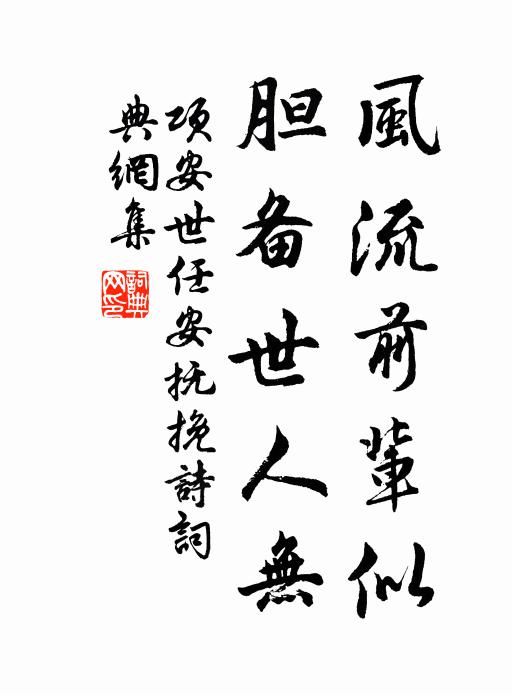 風流前輩似
胆备世人無
项安世任安抚挽詩詞
典網集
詞典網印